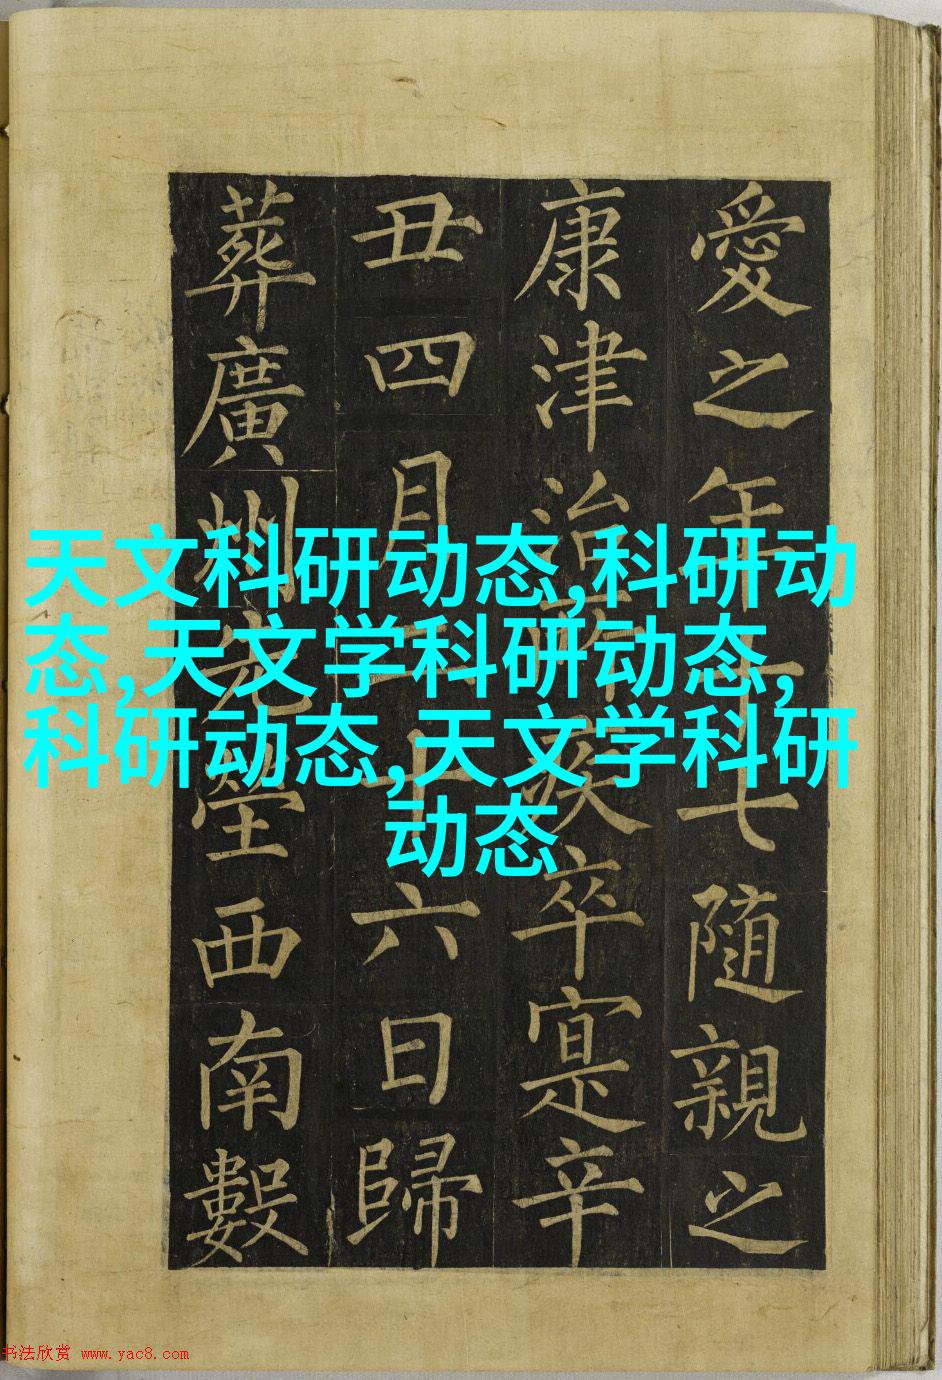 愛之年十七隨親之
康津治疾卒寔辛
丑四月二十六日歸
葬廣州先塋西南數
天文科研动态,科研动
态,天文学科研动态,
科研动态,天文学科研
动态
书法欣赏 www.yac8.com